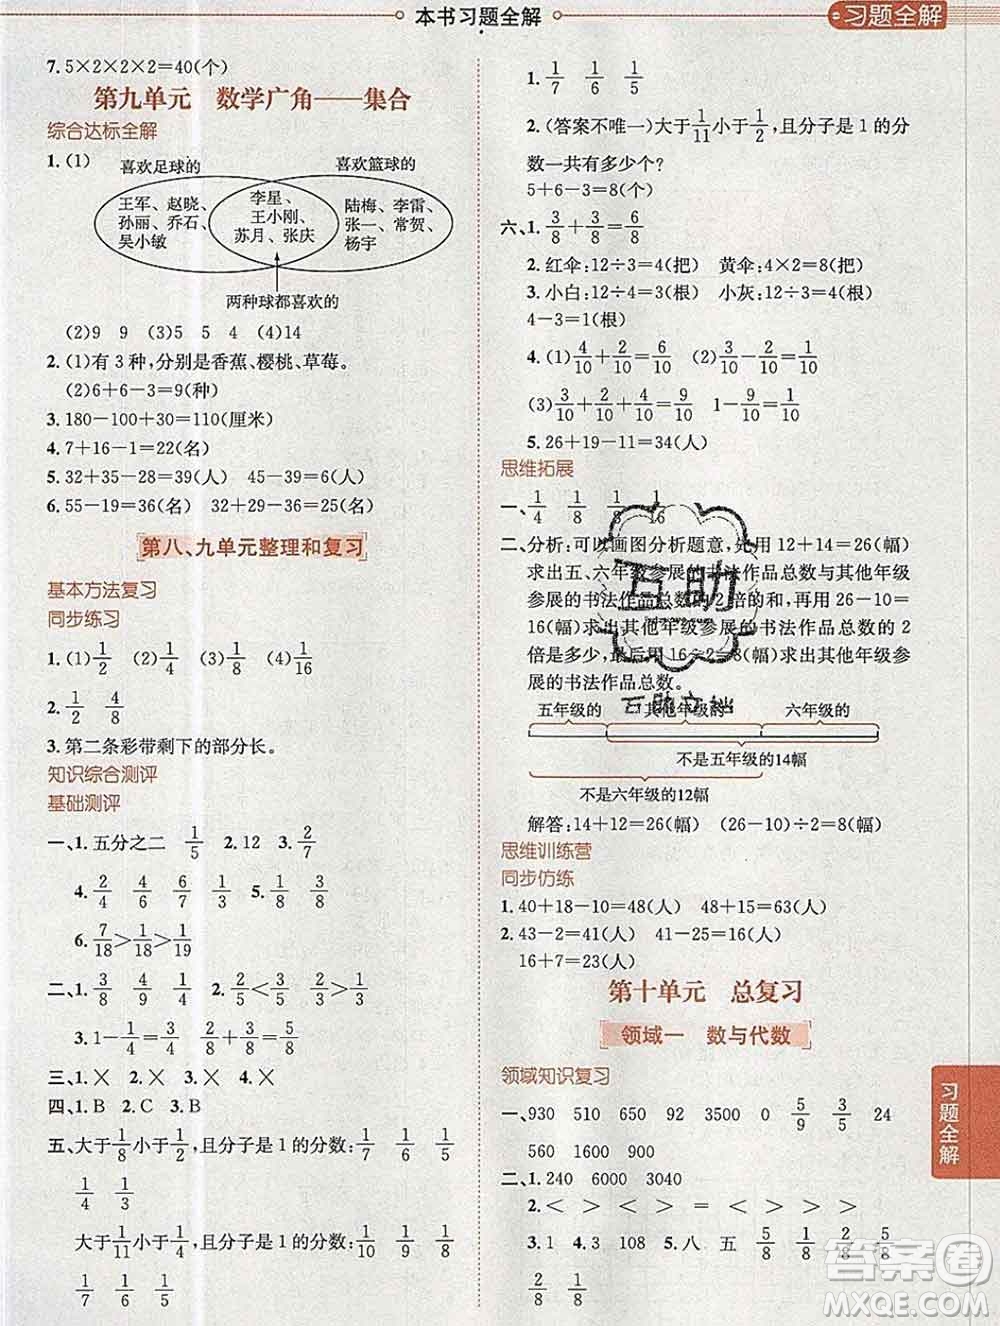 本书习题全解
习题全解
7. 5×2×2×2=40(个)
第九单元 数学广角——集合
综合达标全解
1. (1)
喜欢足球的
喜欢篮球的
王军、赵晓、
孙丽、乔石、
吴小敏
李星、
王小刚、
苏月、张庆
陆梅、李雷、
张一、常贺、
杨宇
两种球都喜欢的
(2)9 9 (3)5 5 4 (4)14
2. (1)有3种,分别是香蕉、樱桃、草莓。
(2)6+6-3=9(种)
3. 180-100+30=110(厘米)
4. 7+16-1=22(名)
5. 32+35-28=39(人) 45-39=6(人)
6. 55-19=36(名) 32+29-36=25(名)
第八、九单元整理和复习
基本方法复习
同步练习
1. (1)1/2 (2)1/4 (3)1/8 (4)1/16
2. 1/2 4/8
3. 第二条彩带剩下的部分长。
知识综合测评
基础测评
一、1. 五分之二 1/5 2. 12 3. 2/7
4. 2/4 4/9 3/4 5. 1/8 3/8
6. 7/18>1/18>1/19
二、1. 3/8 4/9 5/9 2. 2/5<3/5 2/5<2/3
3. 1-1/4=3/4 3/4>1/4 3/8<5/8
三、1. × 2. × 3. ×
四、1. B 2. C 3. B
五、大于1/8小于1/2,且分子是1的分数:1/7 1/6 1/5
1/4 1/3
大于1/11小于1/4,且分子是1的分数:1/10 1/9
1/8 1/7 1/6 1/5
1. 1/7 1/6 1/5
2. (答案不唯一)大于1/11小于1/2,且分子是1的分
数一共有多少个?
5+6-3=8(个)
六、1. 3/8+3/8=6/8
2. 红伞:12÷3=4(把) 黄伞:4×2=8(把)
3. 小白:12÷3=4(根) 小灰:12÷4=3(根)
4-3=1(根)
4. (1)4/10+2/10=6/10 (2)3/10-2/10=1/10
(3)3/10+2/10+4/10=9/10 1-9/10=1/10
5. 26+19-11=34(人)
思维拓展
一、1/4 1/8 1/8 1/16
二、分析:可以画图分析题意,先用12+14=26(幅)
求出五、六年级参展的书法作品总数与其他年级
参展的书法作品总数的2倍的和,再用26-10=
16(幅)求出其他年级参展的书法作品总数的2
倍是多少,最后用16÷2=8(幅)求出其他年级参
展的书法作品总数。
互助
互助文档
五年级的 其他年级的 六年级的
不是五年级的14幅
不是六年级的12幅
解答:14+12=26(幅) (26-10)÷2=8(幅)
思维训练营
同步仿练
1. 40+18-10=48(人) 48+15=63(人)
2. 43-2=41(人) 41-25=16(人)
16+7=23(人)
第十单元 总复习
领域一 数与代数
领域知识复习
一、930 510 650 92 3500 0 5/9 3/5 24
560 1600 900
二、1. 240 6000 3040
2. < > < = < > >
3. 1 4. 3 108 5. 八 五 5/8 1/8 2/8 5/8
2/8 1/8
习题全解
答案圈
MXQE.COM